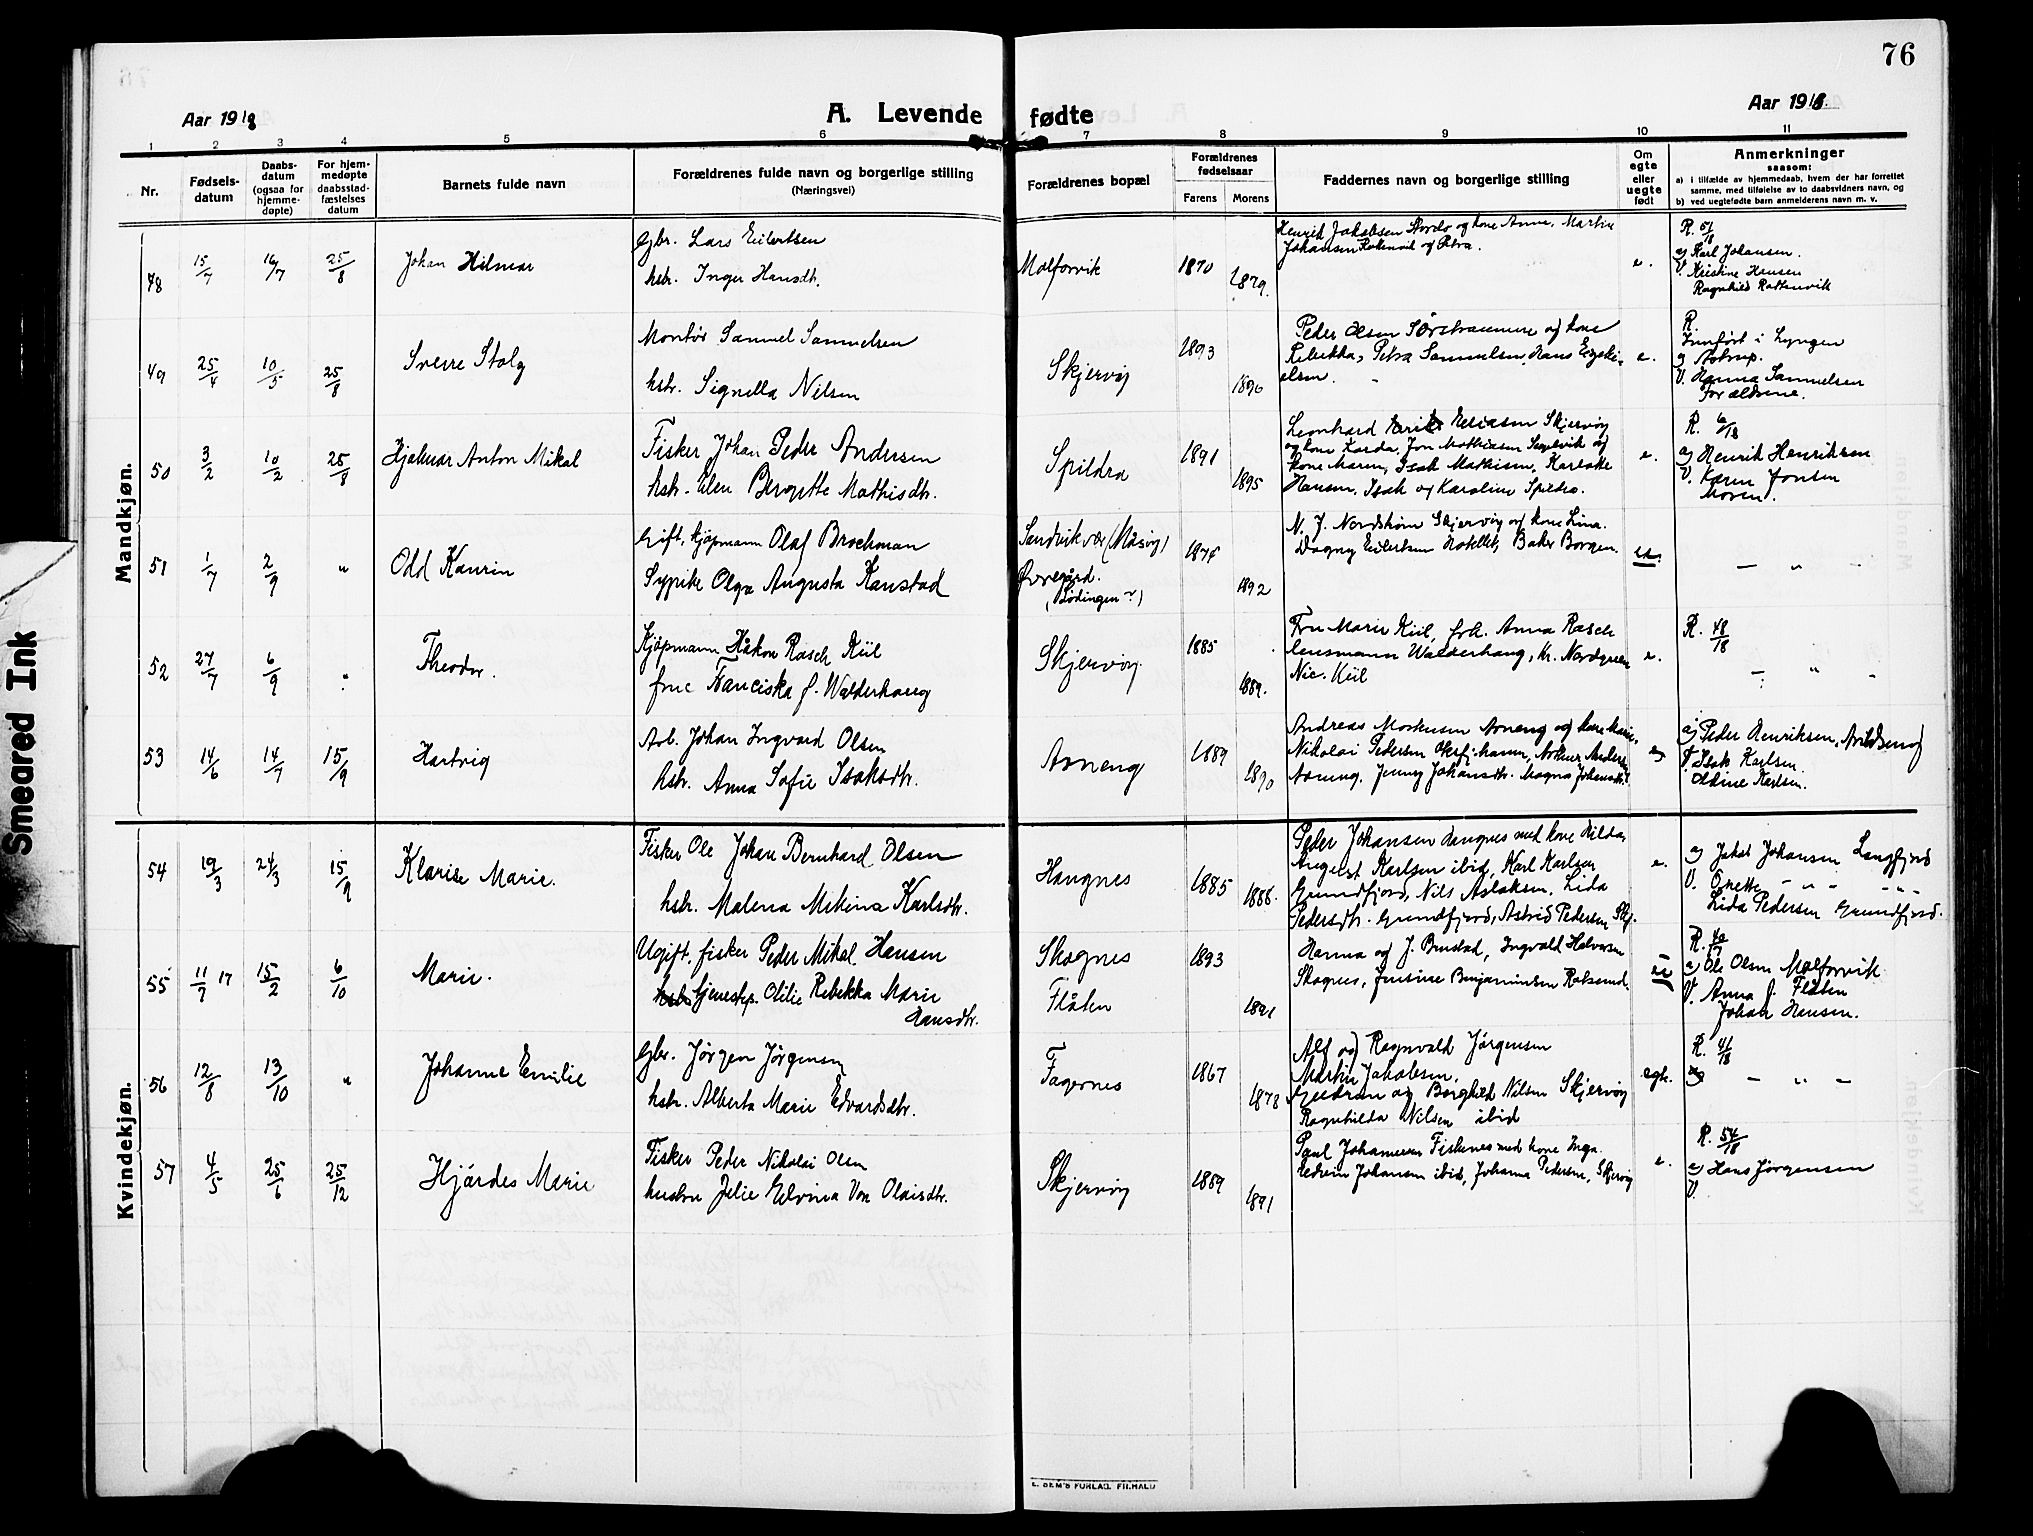 76
Aar 1918
A. Levende fødte
Aar 1918.
1 2 3 4 5 6 7 8 9 10 11
Nr.
Fødsels-
datum
Daabs-
datum
(ogsaa for
hjemme-
døpte)
For hjem-
medøpte
daabsstad-
fæstelses
datum
Barnets fulde navn
Forældrenes fulde navn og borgerlige stilling
(Næringsvei)
Forældrenes bopæl
Forældrenes
fødselsaar
Farens Morens
Faddernes navn og borgerlige stilling
Om
egte
eller
uegte
født
Anmerkninger
saasom:
a) i tilfælde av hjemmedaab, hvem der har forrettet
samme, med tilføielse av to daabsvidners navn, og
b) ved uegtefødte barn anmelderens navn m. v.
Mandkjøn.
48 15/7 16/7 25/8 Johan Hilmar
Gbr. Lars Eilertsen
hstr. Inger Hansdtr.
Molforvik 1870 1879.
Henrik Jakobsen Stordo og kone Anna. Martin
Johansen Rotsenvik og Petra.
e.
R. 51/18
a) Karl Johansen.
V. Kristine Hansen
Ragnhild Rottenvik
49 25/4 10/5 25/8 Sverre Stolg
Montør Samuel Samuelsen
hstr. Signella Nilsen
Skjervøy 1893 1896
Peder Olsen Sørstraumen og kone
Rebekka, Petra Samuelsen, Hans Ezeki-
elsen.
e.
R.
Innført i Lyngen
a) Aatrup.
V. Hanna Samuelsen
Forældrene.
50 3/2 10/2 25/8 Hjalmar Anton Mikal
Fisker Johan Peder Andersen
hstr. Elen Bergitte Mathisdtr.
Spildra 1891 1895
Leonhard Erik Eliasen Skjervøy
og kone Karda, Jon Mathisen Segelvik og
kone Maren, Isak Mathisen, Karlotte
Hansen, Isak og Karoline Spildra.
e.
R. 6/18
a) Henrik Henriksen
V. Karen Jonsen
Moren.
51 1/7 2/9 " Odd Kaurin
Gift, kjøpmann Olaf Brochman
Sypike Olga Augusta Kanstad
Sandvikvær (Måsøy)
Øvregård.
(Lødingen?)
1876 1892
N. J. Nordstrøm Skjervøy og kone Lina.
Dagny Eilertsen Hotellet, Baker Borgen.
— " —
52 27/7 6/9 " Theodor.
Kjøpmann Håkon Rasch Kiil
frue Franciska f. Walderhaug
Skjervøy. 1885 1889.
Fru Marie Kiil, frk. Anna Rasch
lensmann Walderhaug, Kr. Nordgreen
Nic. Kiil
e.
R. 48/18
— " -
53 14/6 14/7 15/9 Hartvig
Arb. Johan Ingvard Olsen
hstr. Anna Sofie Isaksdtr.
Arneng 1889 1890
Andreas Morkusen Arneng og kone Marie,
Nikolai Pedersen Oksfj.hamn, Arthur Anders
Arneng. Jenny Johansdtr. Magna Johansdtr.
a) Peder Henriksen,
V. Isak Karlsen.
Oldine Karlsen.
Kvindekjøn.
54 19/3 24/3 15/9 Klarise Marie.
Fisker Ole Johan Bernhard Olsen
hstr. Malena Mekina Karlsdtr.
Haugnes 1885 1888.
Peder Johansen Laugnes med kone Hilda,
August Karlsen ibid, Karl Karlsen
Grundfjord, Nils Aslaksen, Lida
Pedersdtr. Grundfjord, Astrid Pedersen Skj.
e.
a) Jakob Johansen Langfjord
V. Anette — " " — " -
Lida Pedersen Grundfjord.
55 11/7 17 15/2 6/10 Marie.
Ugift, fisker Peder Mikal Hansen
hstr tjenestp. Otilie Rebekka Marie
Hansdtr.
Skognes
Flåten
1893 1891
Hanna og J. Brustad, Ingvald Halvorsen
Skognes, Justine Benjaminsen Rotsund.
R. 40/7
a) Ole Olsen Molforvik
V. Anna J. Flåten
Johan Hansen.
56 12/8 13/10 " Johanne Emilie
Gbr. Jørgen Jørgensen
hstr. Alberta Marie Edvardsdtr.
Fagernes 1867 1878
Alf og Ragnvald Jørgensen
Martin Jakobsen,
Gudrun og Borghild Nilsen Skjervøy
Ragnhilda Nilsen ibid
egte.
R. 41/18
— " —
57 4/5 25/6 25/12 Hjørdes Marie
Fisker Peder Nikolai Olsen
hustru Jelie Elvina Von Olaisdtr.
Skjervøy 1889 1891
Paul Johannesen Fiskenes med kone Inga.
Edvin Johansen ibid, Johanna Pedersen, Skjervøy
e.
R. 54/18
a) Hans Jørgensen
V.
E. SEM'S FORLAG, FR.HALD
Smeared Ink